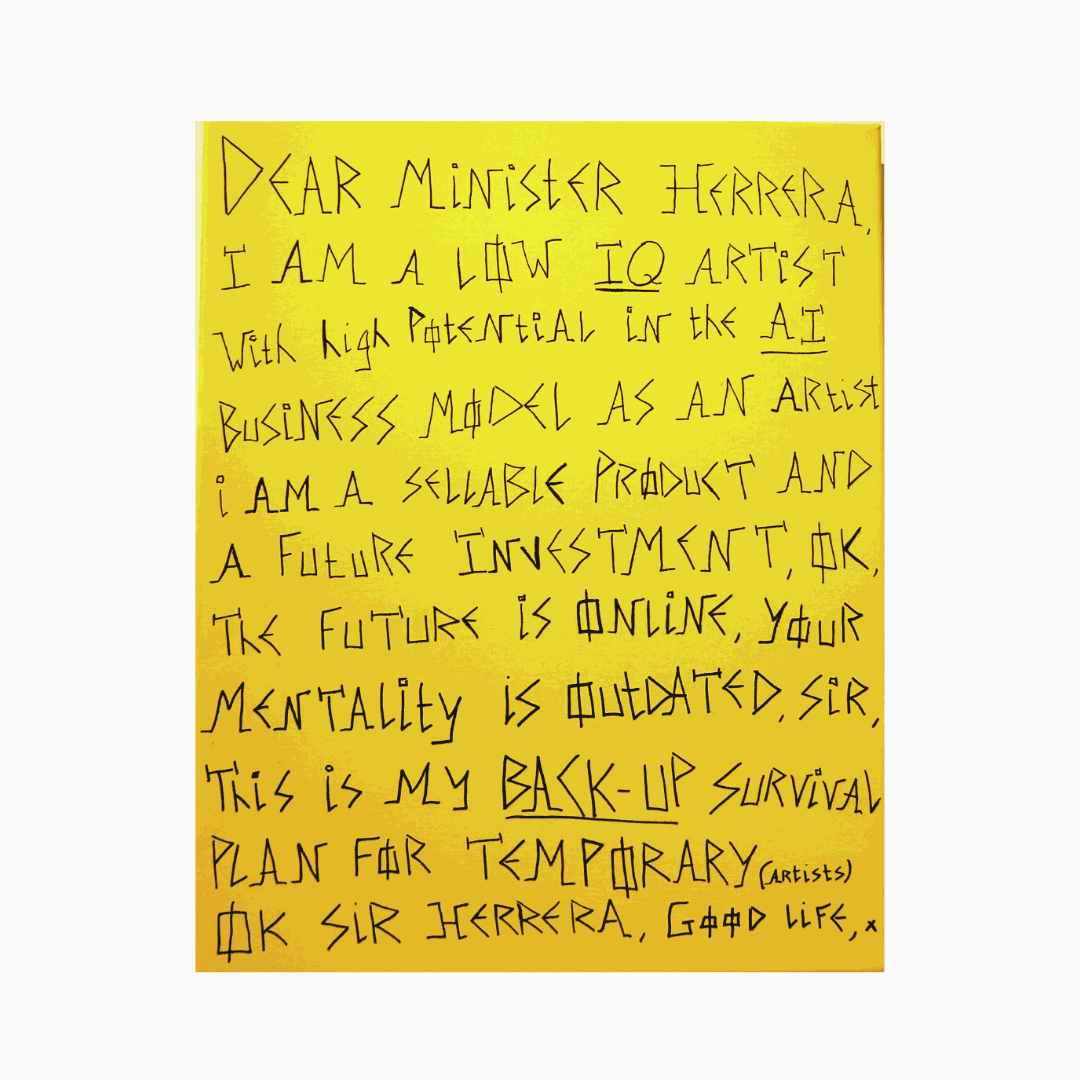 DEAR MiNiStER HERRERA,
I AM A LØW IQ ARTiST
With high PøtENtiAL iN the AI
BUSiNESS MØDEL AS AN ARtist
i AM A SELLABLE PRØDUCT AND
A FUtURE INVESTMENT, ØK,
ThE FUTURE iS ØNLiNE, YØUR
MENTALity iS ØUtDATED, SiR,
This iS MY BACK-UP SURViVAL
PLAN FØR TEMPØRARY (ARtists)
ØK SiR HERRERA, GØØD LiFE, x